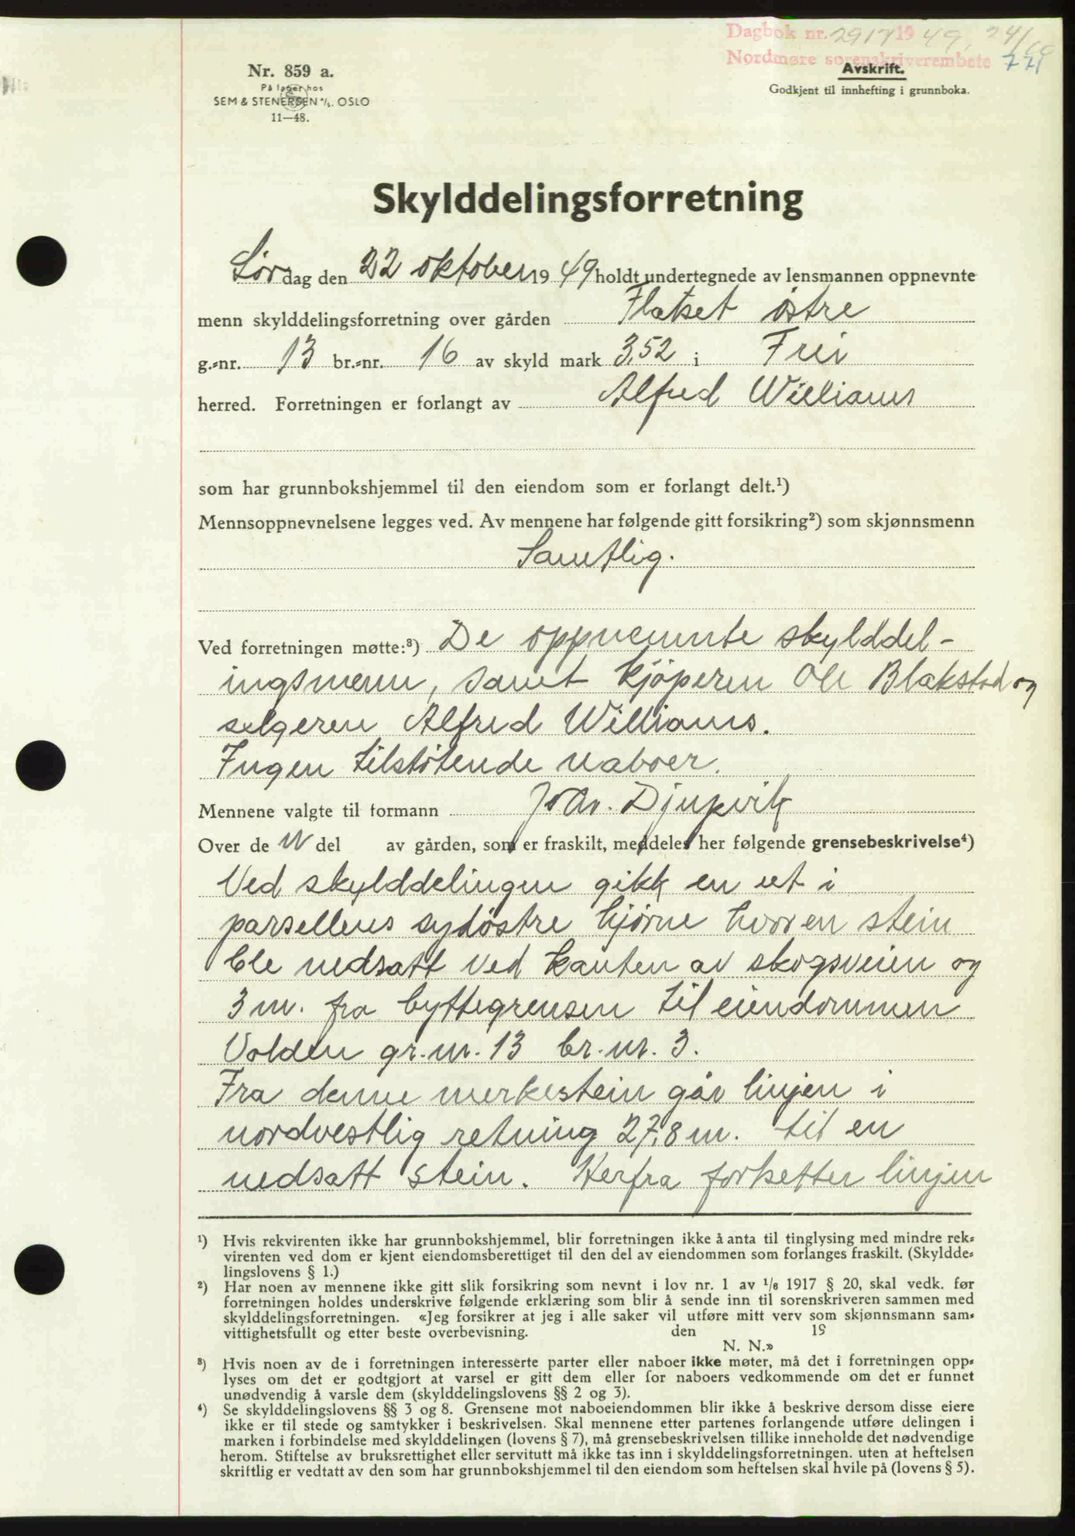 Dagbok nr. 2917 1949, 24/10
Nordmøre sorenskriverembete 771
Nr. 859 a.
På lager hos
SEM & STENERSEN A/S. OSLO
11—48.
Avskrift.
Godkjent til innhefting i grunnboka.
Skylddelingsforretning
Lørdag den 22 oktober 1949 holdt undertegnede av lensmannen oppnevnte
menn skylddelingsforretning over gården Flatset østre
g.-nr. 13 br.-nr. 16 av skyld mark 3,52 i Frei
herred. Forretningen er forlangt av Alfred Williams
som har grunnbokshjemmel til den eiendom som er forlangt delt.¹)
Mennsoppnevnelsene legges ved. Av mennene har følgende gitt forsikring²) som skjønnsmenn
Samtlig.
Ved forretningen møtte:³) De oppnemnte skylddel-
ingsmenn, samt kjøperen Ole Blakstad og
selgeren Alfred Williams.
Ingen tilstøtende naboer.
Mennene valgte til formann Djupvik
Over de n del av gården, som er fraskilt, meddeles her følgende grensebeskrivelse⁴)
Ved skylddelingen gikk en ut i
parsellens sydøstre hjørne hvor en stein
ble nedsatt ved kanten av skogsveien og
3 m. fra byttegrensen til eiendommen
Volden gr.nr. 13 br.nr. 3.
Fra denne merkestein går linjen i
nordvestlig retning 27,8 m. til en
nedsatt stein. Herfra forsetter linjen
¹) Hvis rekvirenten ikke har grunnbokshjemmel, blir forretningen ikke å anta til tinglysing med mindre rek-
virenten ved dom er kjent eiendomsberettiget til den del av eiendommen som forlanges fraskilt. (Skyldde-
lingslovens § 1.)
²) Har noen av mennene ikke gitt slik forsikring som nevnt i lov nr. 1 av 1/6 1917 § 20, skal vedk. før
forretningen holdes underskrive følgende erklæring som blir å sende inn til sorenskriveren sammen med
skylddelingsforretningen. «Jeg forsikrer at jeg i alle saker vil utføre mitt verv som skjønnsmann sam-
vittighetsfullt og etter beste overbevisning. den 19
N. N.»
³) Hvis noen av de i forretningen interesserte parter eller naboer ikke møter, må det i forretningen opp-
lyses om det er godtgjort at varsel er gitt dem eller for naboers vedkommende om det er funnet
unødvendig å varsle dem (skylddelingslovens §§ 2 og 3).
⁴) Se skylddelingslovens §§ 3 og 8. Grensene mot naboeiendommen blir ikke å beskrive dersom disse eiere
ikke er til stede og samtykker i beskrivelsen. Skal mennene etter partenes forlangende utføre delingen i
marken i forbindelse med skylddelingen (lovens § 7), må grensebeskrivelsen tillike inneholde det nødvendige
herom. Stiftelse av bruksrettighet eller servitutt må ikke tas inn i skylddelingsforretningen. uten at heftelsen
skriftlig er vedtatt av den som har grunnbokshjemmel til den eiendom som heftelsen skal hvile på (lovens § 5).